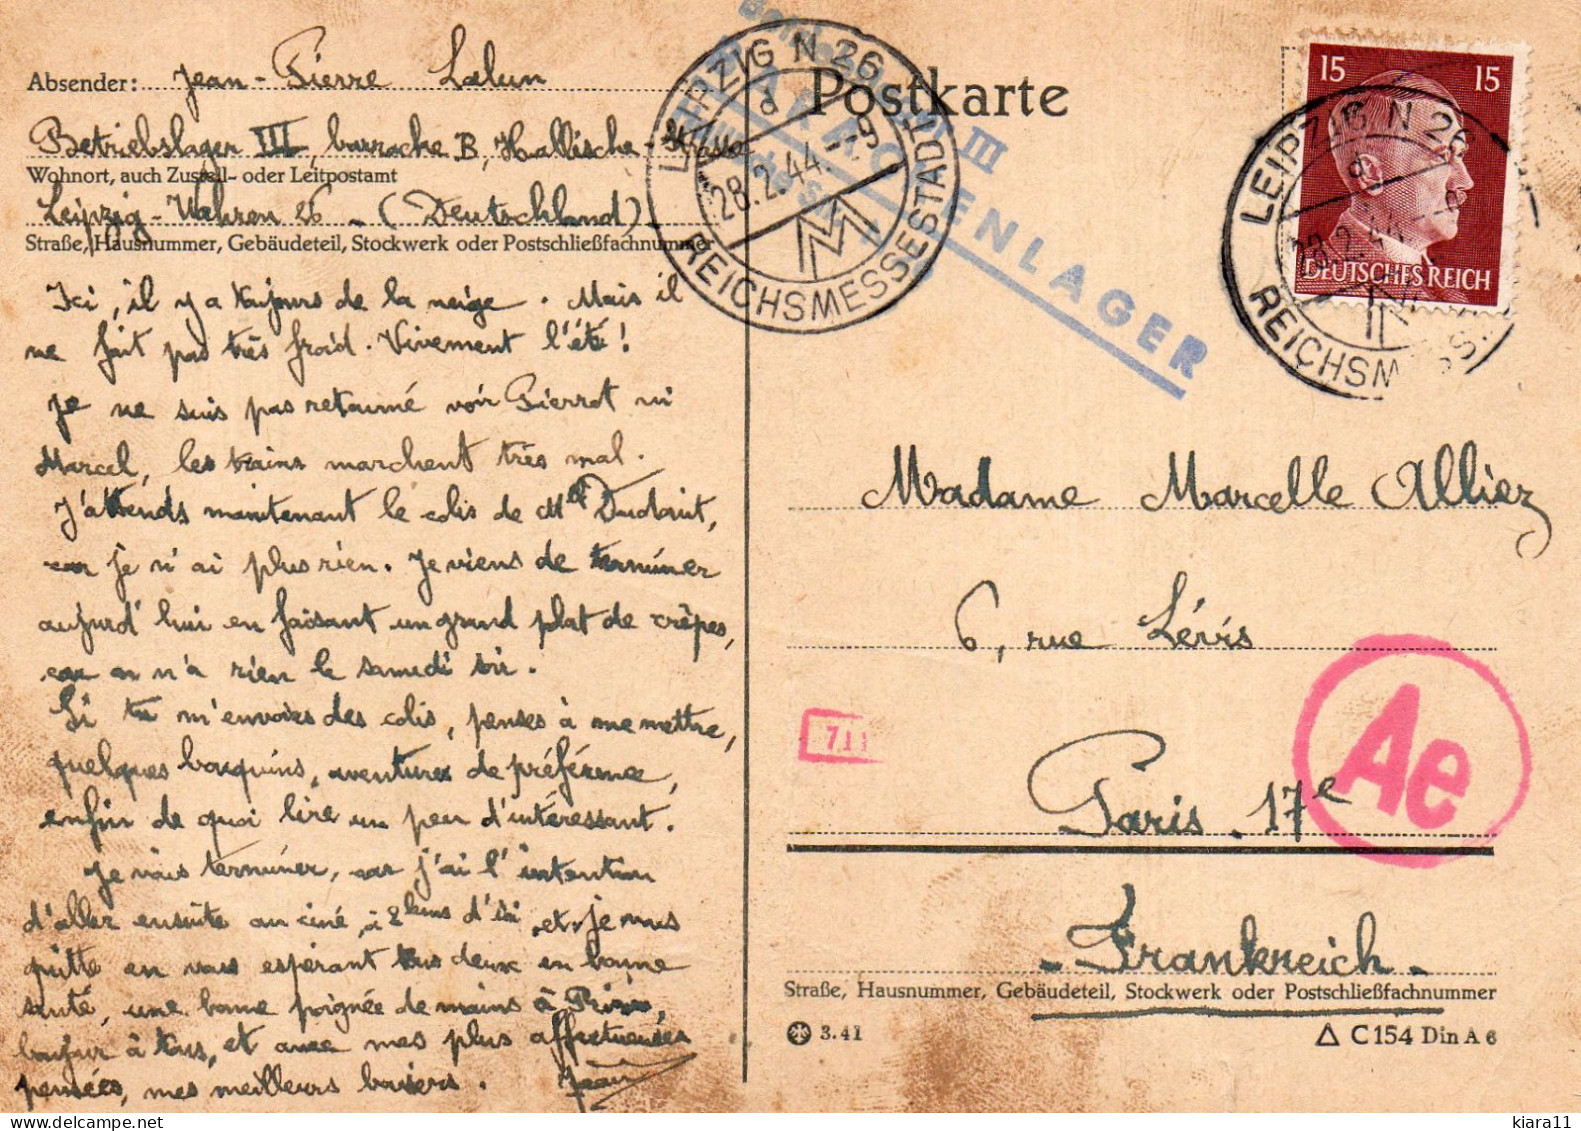 Absender: Jean-Pierre
Betriebslager III, barrache B, Hallische-Strasse
Wohnort, auch Zustell- oder Leitpostamt
Leipzig-Wahren 26 - (Deutschland)
Straße, Hausnummer, Gebäudeteil, Stockwerk oder Postschließfachnummer
Ici, il y a toujours de la neige. Mais il
ne fait pas très froid. Vivement l'été!
Je ne suis pas retourné voir Pierrot ni
Marcel, les trains marchent très mal.
J'attends maintenant le colis de
car je n'ai plus rien. Je viens de terminer
aujourd'hui en faisant un grand plat de crêpes,
car on n'a rien le samedi soir.
Si tu m'envoies des colis, penses à me mettre,
quelques bouquins, aventures de préférence,
enfin de quoi lire un peu d'intéressant.
Je vais terminer, car j'ai l'intention
d'aller ensuite au ciné, à 2 kms d'ici, et je vous
quitte en vous espérant tous deux en bonne
santé, une bonne poignée de mains à
bonjour à tous, et avec mes plus affectueuses
pensées, mes meilleurs baisers. Jean
LEIPZIG N 26
d
28.2.44.--9
REICHSMESSESTADT
III
BARACKENLAGER
Postkarte
15 15
DEUTSCHES REICH
LEIPZIG N 26
d
28.2.44.
REICHSMESS
Madame Marcelle Alliez
6, rue Lévis
711
Ae
Paris. 17e
- Frankreich -
Straße, Hausnummer, Gebäudeteil, Stockwerk oder Postschließfachnummer
3.41
C 154 Din A 6
kiara11